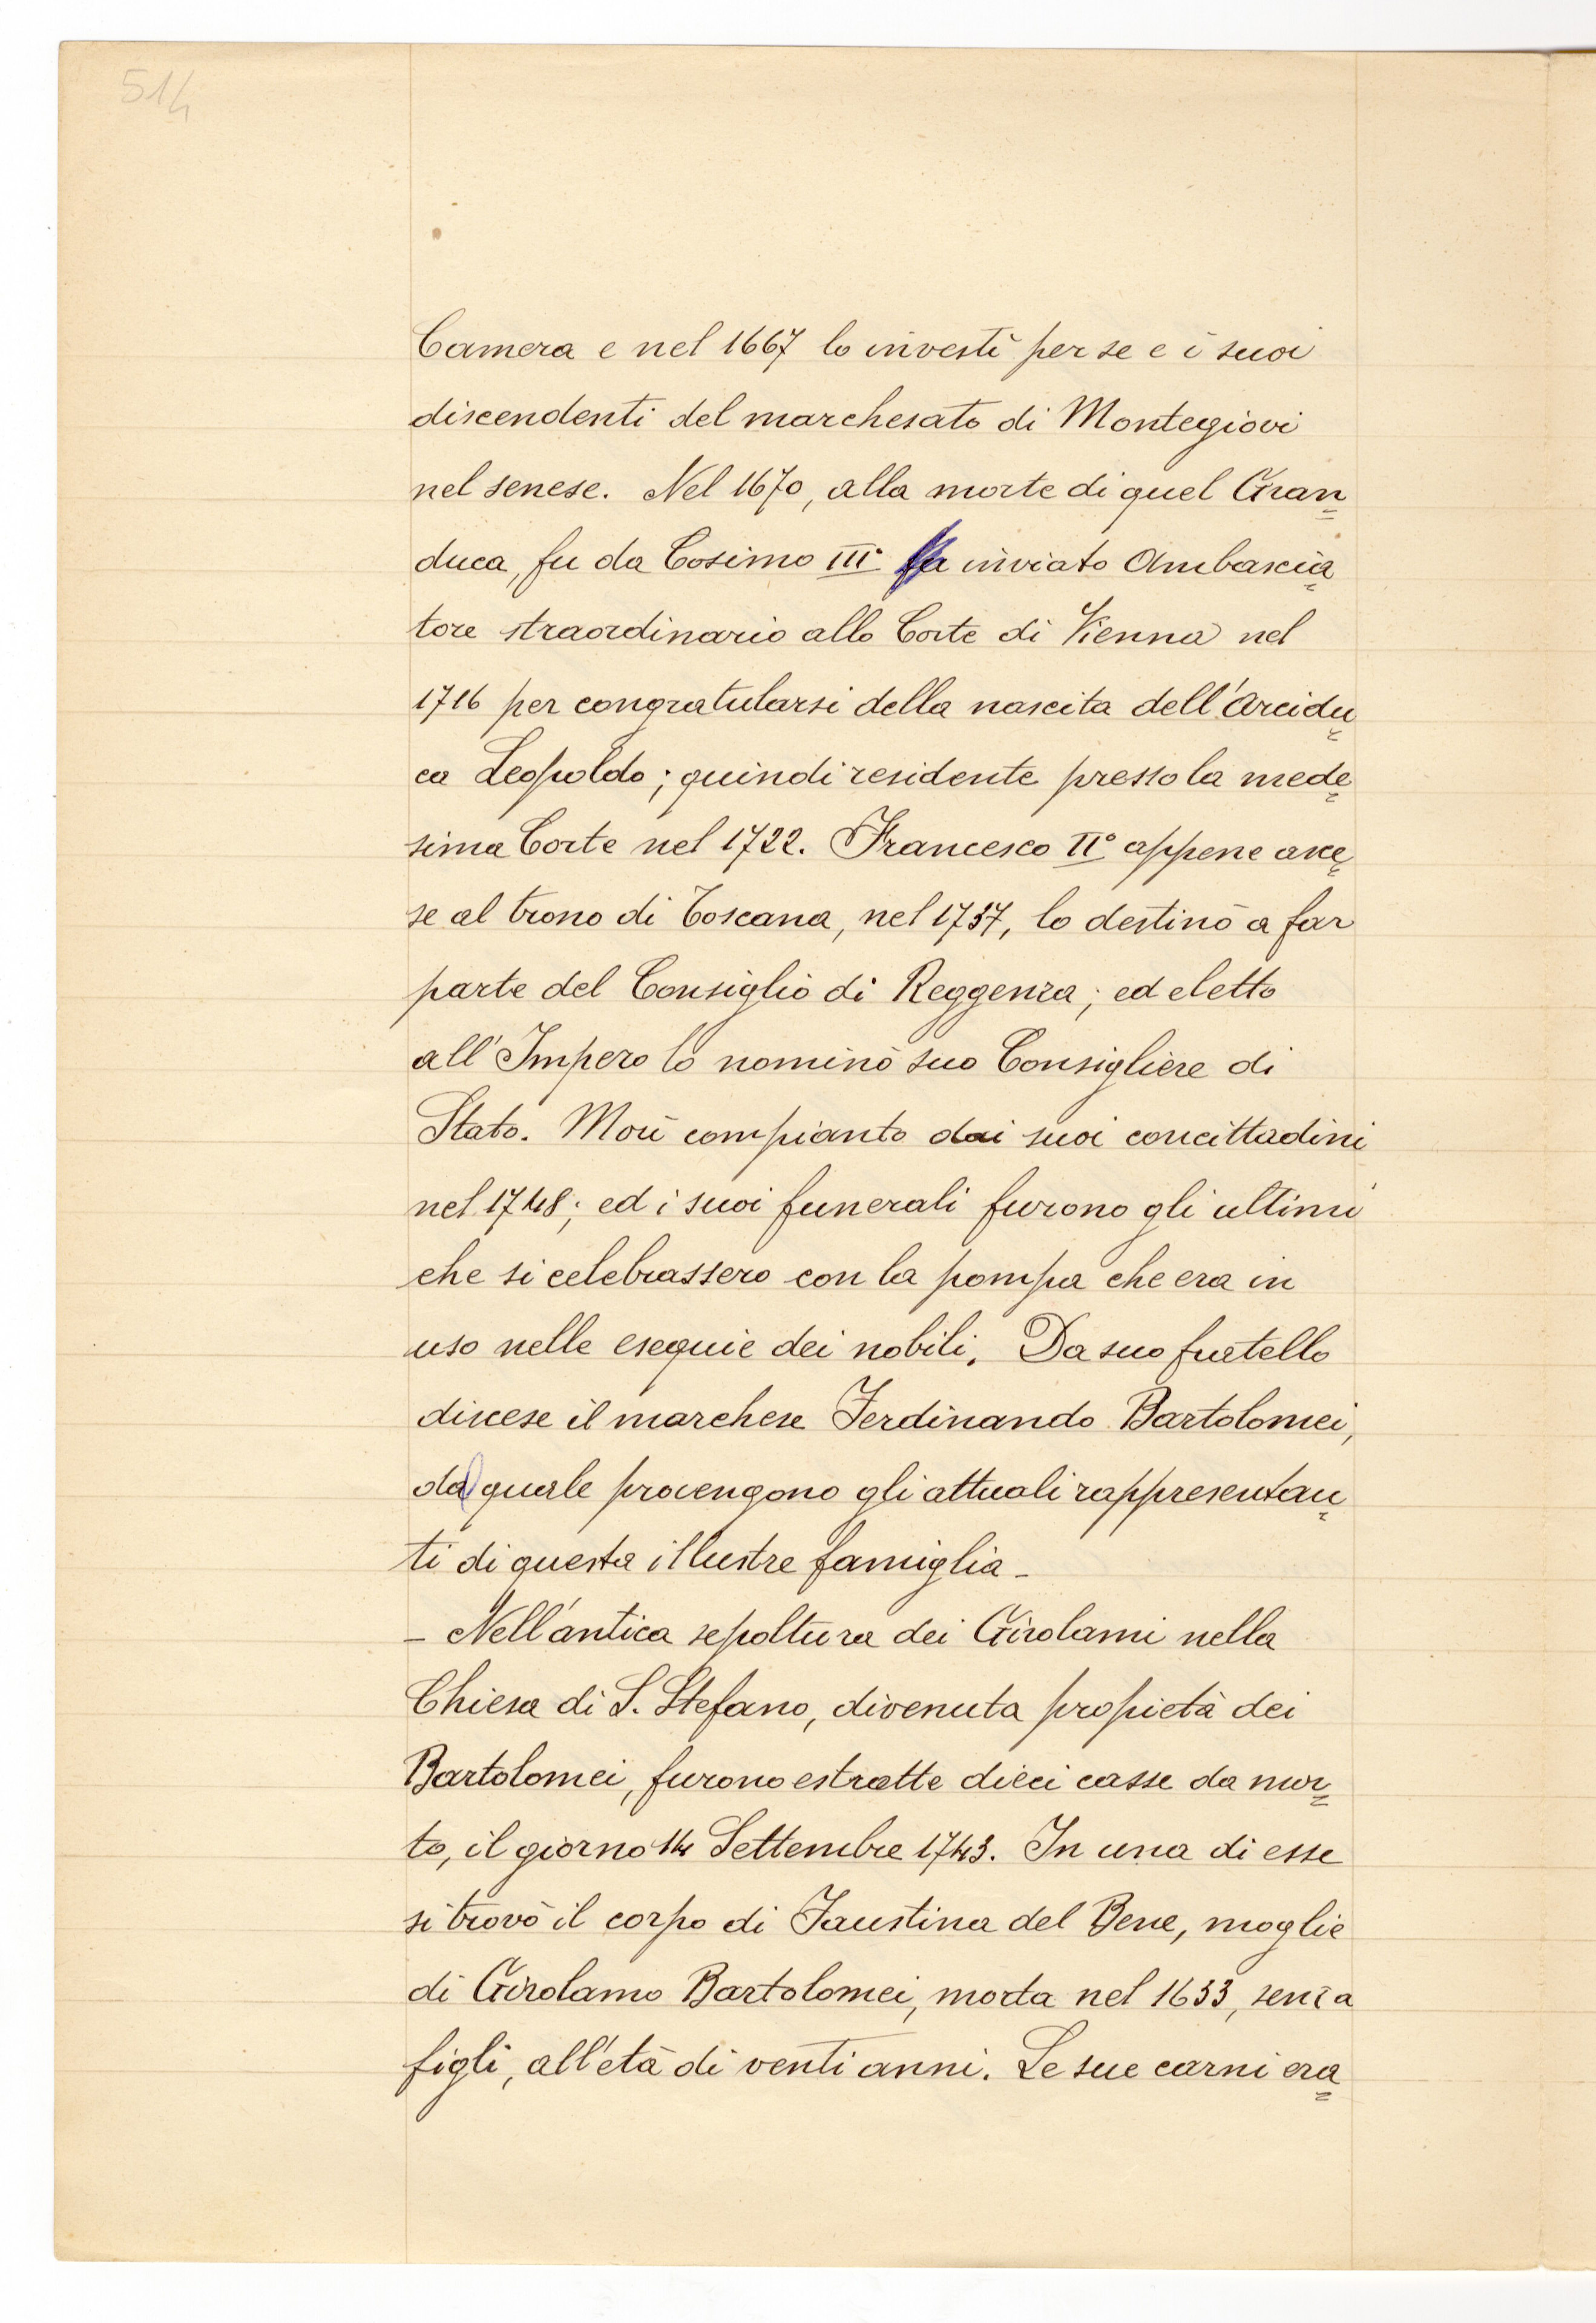 514
Camera e nel 1667 lo investì per se e i suoi
discendenti del marchesato di Montegiovi
nel senese. Nel 1670, alla morte di quel Gran=
duca, fu da Cosimo III° inviato Ambascia=
tore straordinario alla Corte di Vienna nel
1716 per congratularsi della nascita dell'Arcidu=
ca Leopoldo; quindi residente presso la mede=
sima Corte nel 1722. Francesco II° appene asce=
se al trono di Toscana, nel 1737, lo destinò a far
parte del Consiglio di Reggenza; ed eletto
all'Impero lo nominò suo Consigliere di
Stato. Morì compianto dai suoi concittadini
nel 1748; ed i suoi funerali furono gli ultimi
che si celebrassero con la pompa che era in
uso nelle esequie dei nobili. Da suo fratello
discese il marchese Ferdinando Bartolomei,
dal quale provengono gli attuali rappresentan=
ti di questa illustre famiglia -
- Nell'antica sepoltura dei Girolami nella
Chiesa di S. Stefano, divenuta propietà dei
Bartolomei, furono estratte dieci casse da mor=
to, il giorno 14 Settembre 1743. In una di esse
si trovò il corpo di Faustina del Bene, moglie
di Girolamo Bartolomei, morta nel 1633, senza
figli, all'età di venti anni. Le sue carni era=